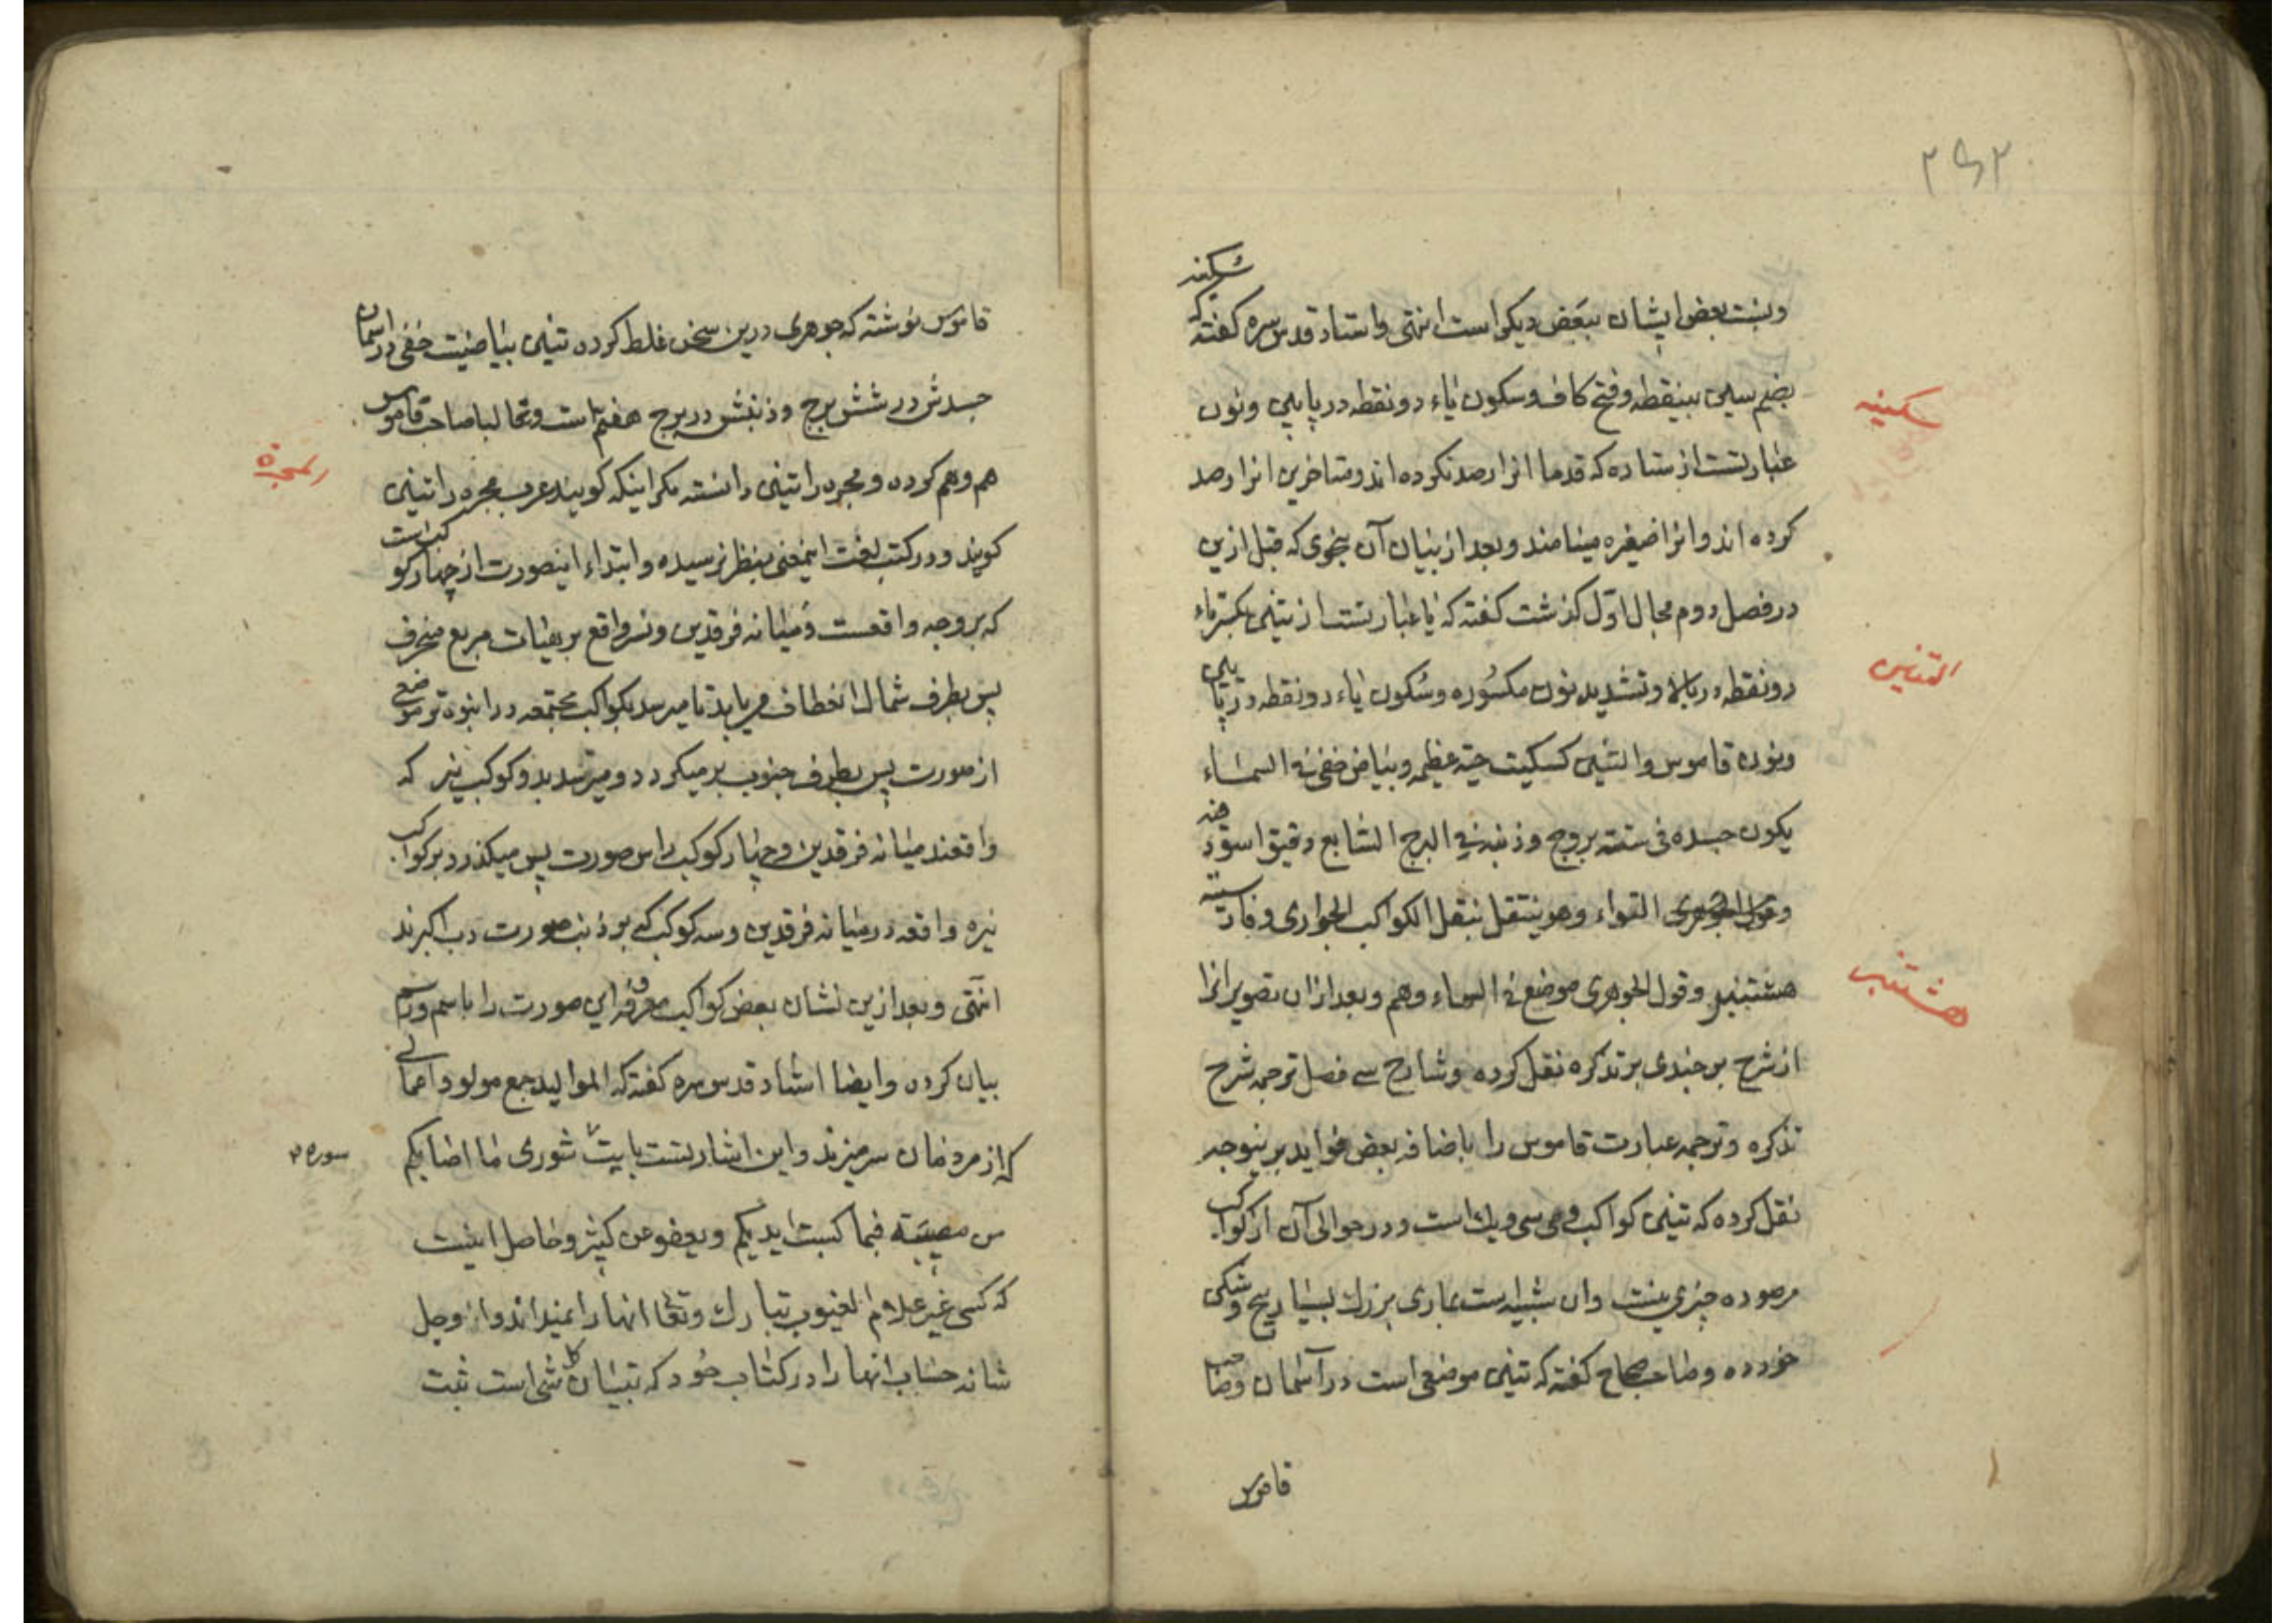 ۲۹۲
ونسبت بعض ایشان ببعض دیکر است انتهی واستاد قدس سره کفته که سکینه
بضم سین بینقطه وفتح کاف وسکون یاء دو نقطه در پایین ونون
سکینه
عبارتست از ستاره که قدما انرا رصد نکرده اند ومتاخرین انرا رصد
کرده اند وانرا صغیره مینامند وبعد از بیان آن بنحوی که قبل ازین
در فصل دوم مجال اوّل کذشت کفته که یا عبارتست از تنین بکسر تاء
التنین
دو نقطه در بالا وتشدید نون مکسوره وسکون یاء دو نقطه در پایین
ونون قاموس والتنین کسکیت حیة عظیمه وبیاض خفی فی السماء
یکون جسده فی ستة بروج وذنبه فی البرج السابع دقیق اسود فیه
التواء وهو ینتقل تنقل الکواکب الجواری وفارسیته
هشتنبر وقول الجوهری موضع فی السماء وهم وبعد ازان تصویر انرا
هشتنبر
از شرح برجندی بر تذکره نقل کرده وشارح سی فصل ترجمه شرح
تذکره وترجمه عبارت قاموس را باضافه بعض فواید برینوجه
نقل کرده که تنین کواکب وی سی ویك است ودر حوالی آن از کواکب
مرصوده چیزی نیست وان شبیه است بماری بزرك بسیار پیچ وشکن
خورده وصاحب صحاح کفته که تنین موضعی است در آسمان وصاحب
قاموس
قاموس نوشته که جوهری درین سخن غلط کرده تنین بیاضیست خفی در اسمان
جسدش در شش برج وذنبش در برج هفتم است وغالبا صاحب قاموس
هم وهم کرده ومجره را تنین دانسته مکر اینکه کویند عرب مجره را تنین
المجرة
کویند ودر کتب لغت اینمعنی بنظر نرسیده وابتداء اینصورت از چهار کوکب است
که بر وجه واقعست ومیانه فرقدین ونسر واقع بر هیات مربع منحرف
پس بطرف شمال انعطاف مییابد تا میرسد بکواکب مجتمعه در انبوه تر موضعی
از صورت پس بطرف جنوب بر میکردد ومیرسد بدو کوکب نیر که
واقعند میانه فرقدین وچهار کوکب راس صورت پس میکذرد بر کواکب
نیره واقعه در میانه فرقدین وسه کوکب که بر ذنب صورت دب اکبرند
انتهی وبعد ازین نشان بعض کواکب معروفه این صورت را باسم ورسم
بیان کرده وایضا استاد قدس سره کفته که الموالید جمع مولود اعمالی
که از مردمان سر میزند واین اشارتست بایت شوری ما اصابکم
سوره ۴۲
من مصیبة فبما کسبت ایدیکم ویعفو عن کثیر وحاصل اینست
که کسی غیر علام الغیوب تبارك وتعالی انها را نمیداند واو جل
شانه حساب انها را در کتاب خود که تبیان کل شی است ثبت